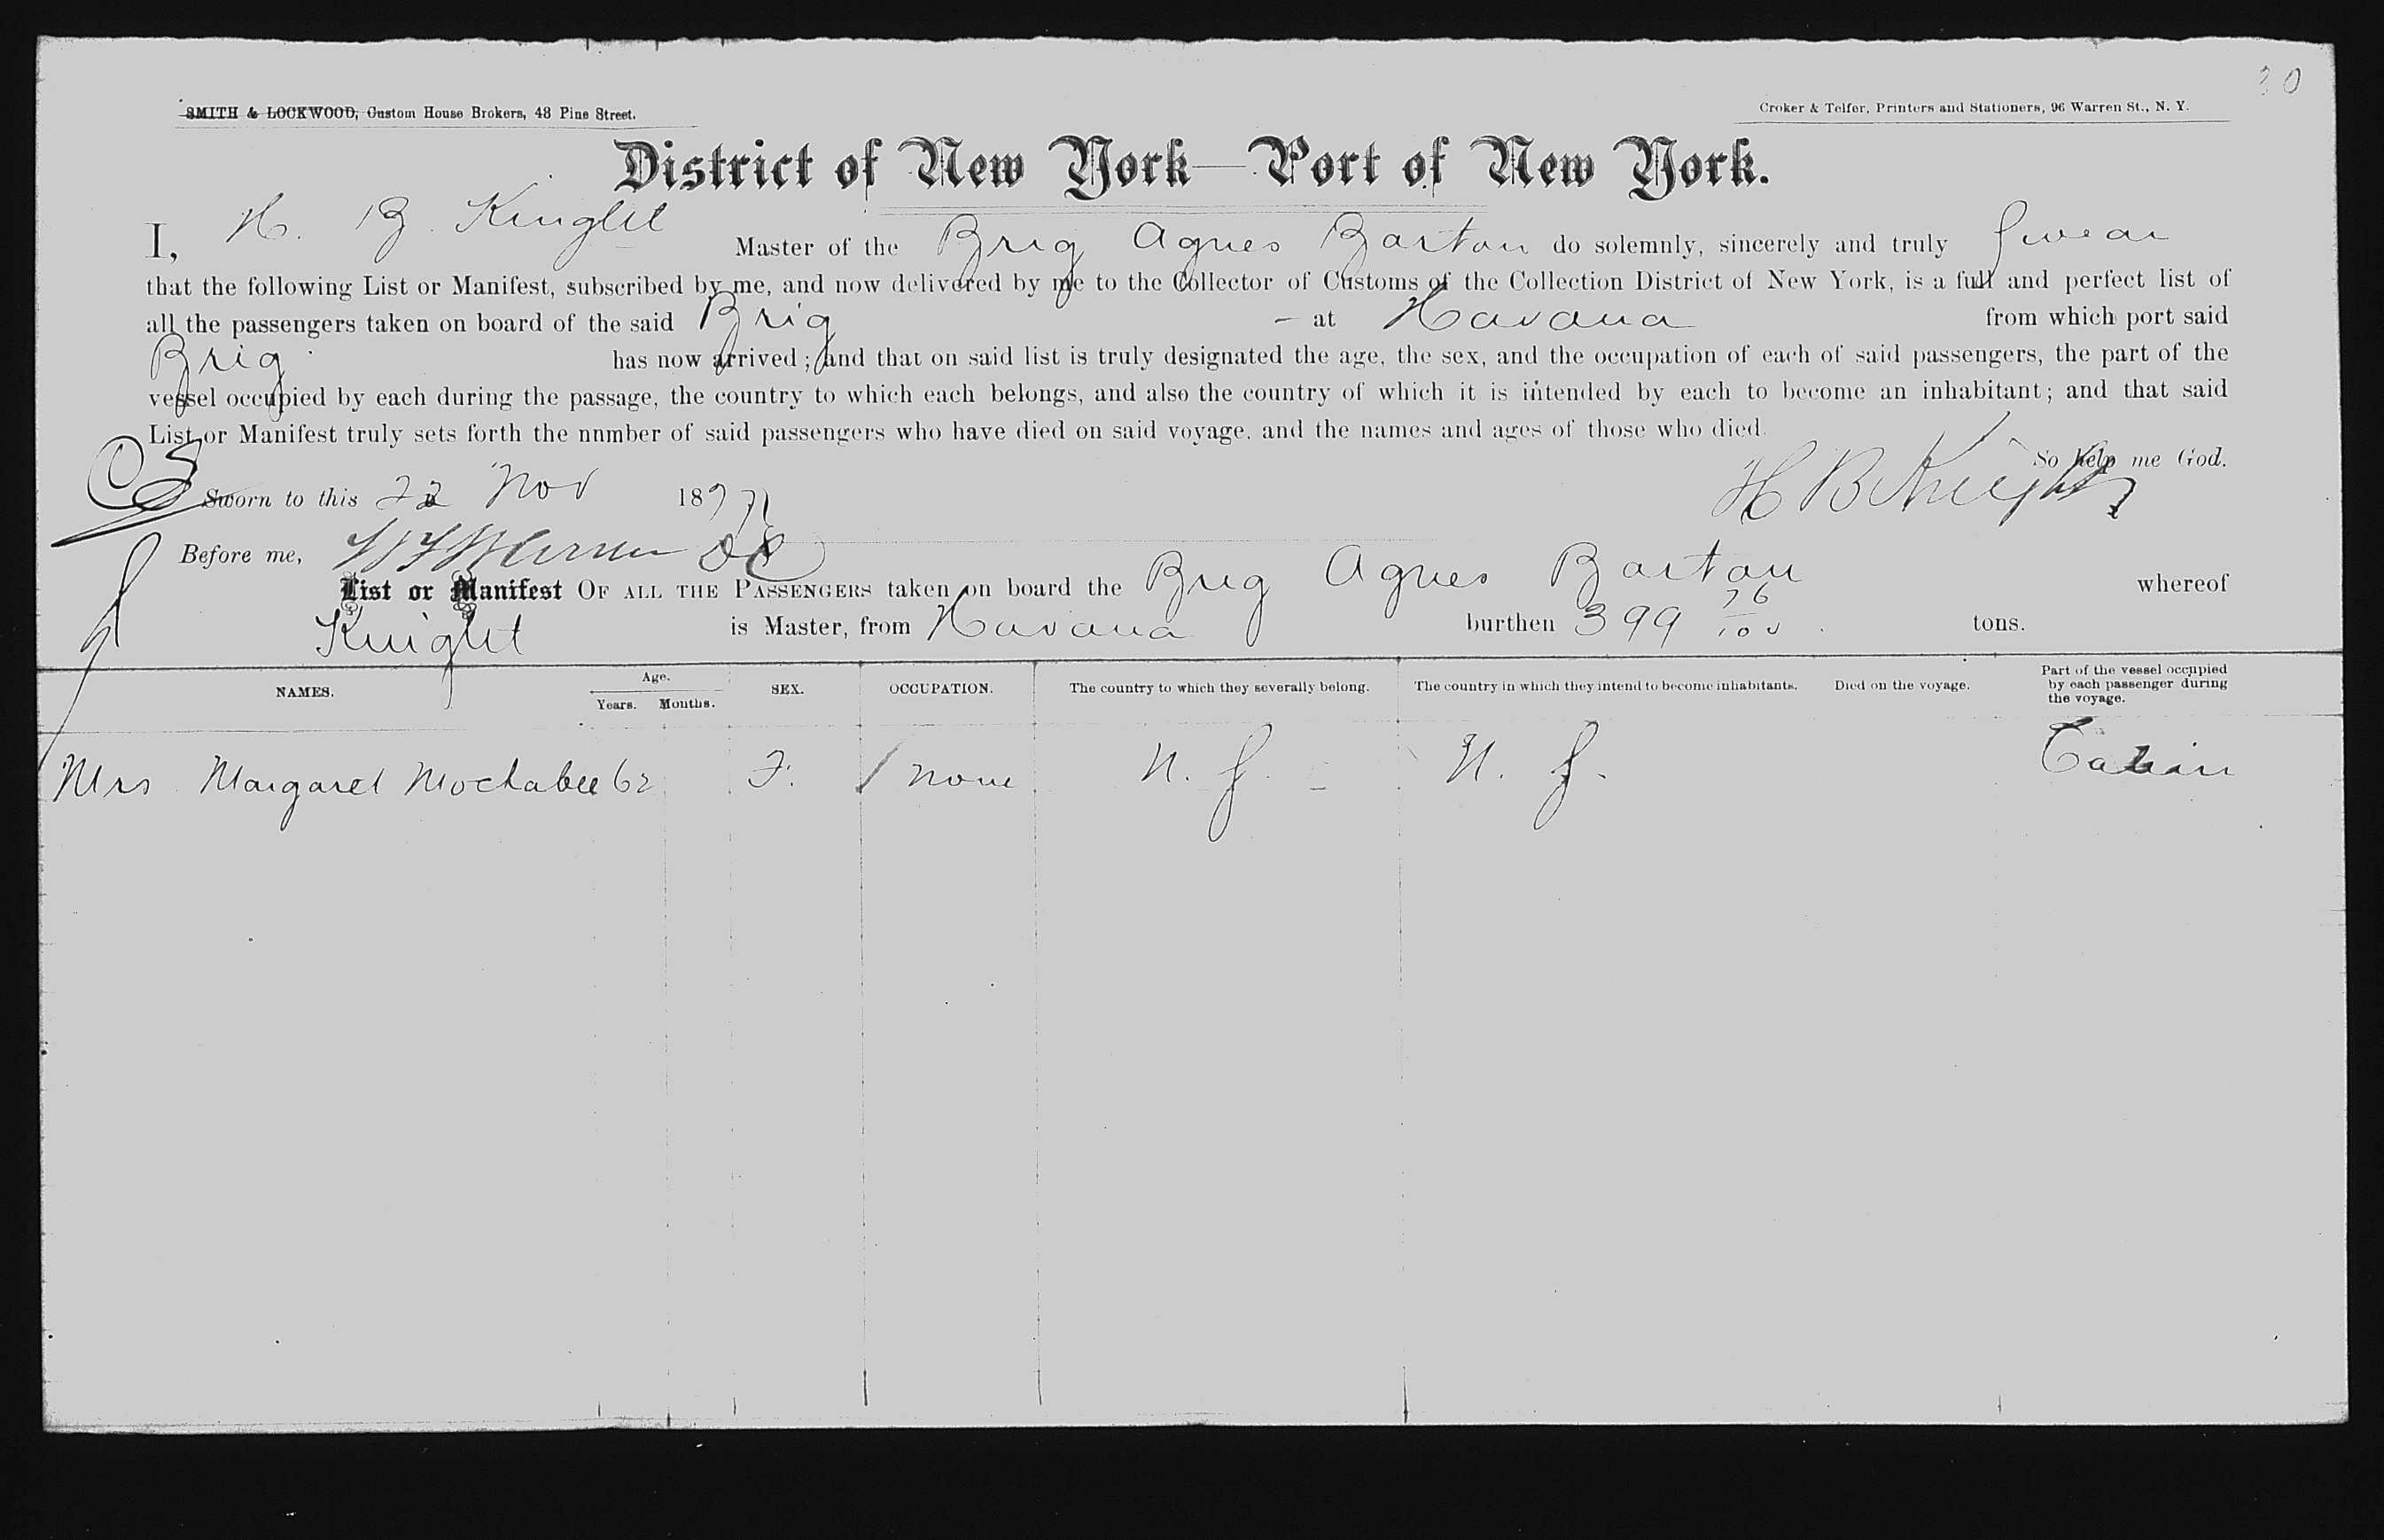 SMITH & LOCKWOOD, Custom House Brokers, 48 Pine Street.
Croker & Telfer, Printers and Stationers, 96 Warren St., N. Y.
District of New York—Port of New York.
I, H. B. Knight Master of the Brig Agnes Barton do solemnly, sincerely and truly Swear
that the following List or Manifest, subscribed by me, and now delivered by me to the Collector of Customs of the Collection District of New York, is a full and perfect list of
all the passengers taken on board of the said Brig – at Havana from which port said
Brig has now arrived; and that on said list is truly designated the age, the sex, and the occupation of each of said passengers, the part of the
vessel occupied by each during the passage, the country to which each belongs, and also the country of which it is intended by each to become an inhabitant; and that said
List or Manifest truly sets forth the nnmber of said passengers who have died on said voyage, and the names and ages of those who died.
So help me God.
Sworn to this 22 Nov 187 H B Knight
Before me,
List or Manifest OF ALL THE PASSENGERS taken on board the Brig Agnes Barton whereof
Knight is Master, from Havana burthen 399 76/100 tons.
NAMES. Age. Years. Months. SEX. OCCUPATION. The country to which they severally belong. The country in which they intend to become inhabitants. Died on the voyage. Part of the vessel occupied by each passenger during the voyage.
Mrs Margaret Mochabee 62 F. none N. J. N. J. Cabin